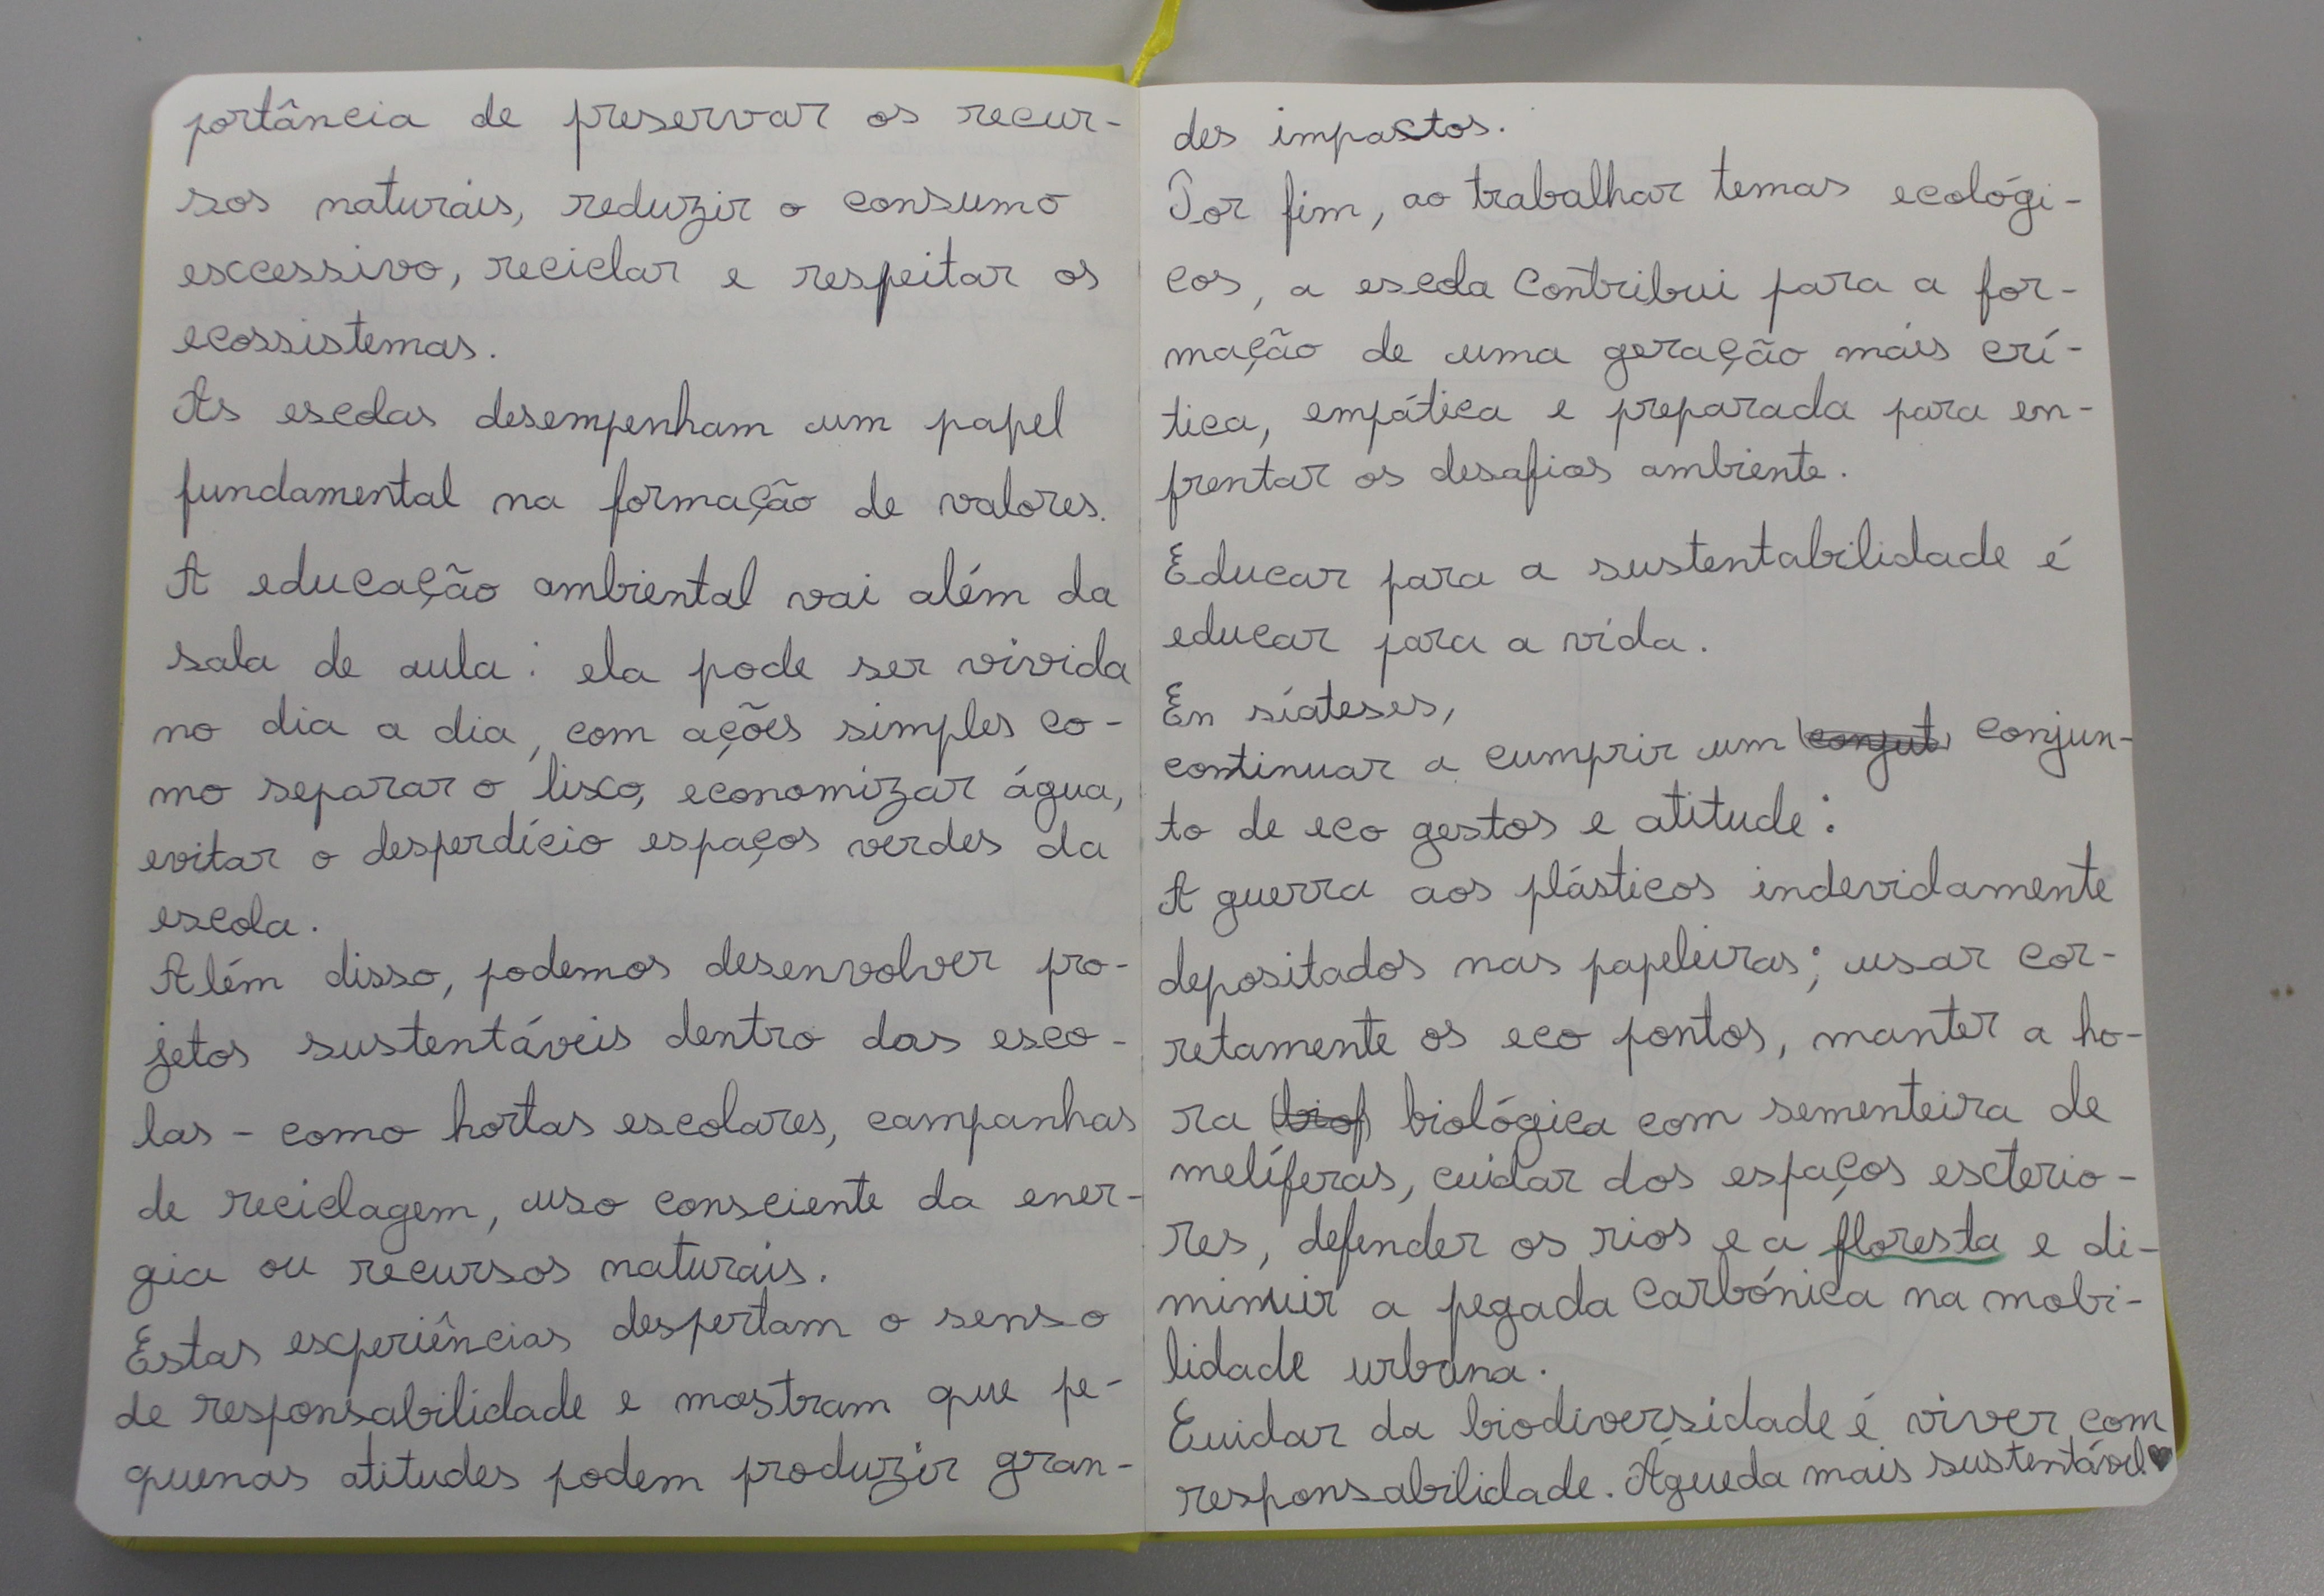 portância de preservar os recur-
sos naturais, reduzir o consumo
excessivo, reciclar e respeitar os
ecossistemas.
As escolas desempenham um papel
fundamental na formação de valores.
A educação ambiental vai além da
sala de aula: ela pode ser vivida
no dia a dia, com ações simples co-
mo separar o lixo, economizar água,
evitar o desperdício espaços verdes da
escola.
Além disso, podemos desenvolver pro-
jetos sustentáveis dentro das esco-
las - como hortas escolares, campanhas
de reciclagem, uso consciente da ener-
gia ou recursos naturais.
Estas experiências despertam o senso
de responsabilidade e mostram que pe-
quenas atitudes podem produzir gran-
des impactos.
Por fim, ao trabalhar temas ecológi-
cos, a escola contribui para a for-
mação de uma geração mais crí-
tica, empática e preparada para en-
frentar os desafios ambiente.
Educar para a sustentabilidade é
educar para a vida.
En síateses,
continuar a cumprir um (conjut) conjun-
to de eco gestos e atitude:
A guerra aos plásticos indevidamente
depositados nas papeleiras; usar cor-
retamente os eco pontos, manter a ho-
ra (biof) biológica com sementeira de
melíferas, cuidar dos espaços exterio-
res, defender os rios e a floresta e di-
minuir a pegada carbónica na mobi-
lidade urbana.
Cuidar da biodiversidade é viver com
responsabilidade. Águeda mais sustentável!♥